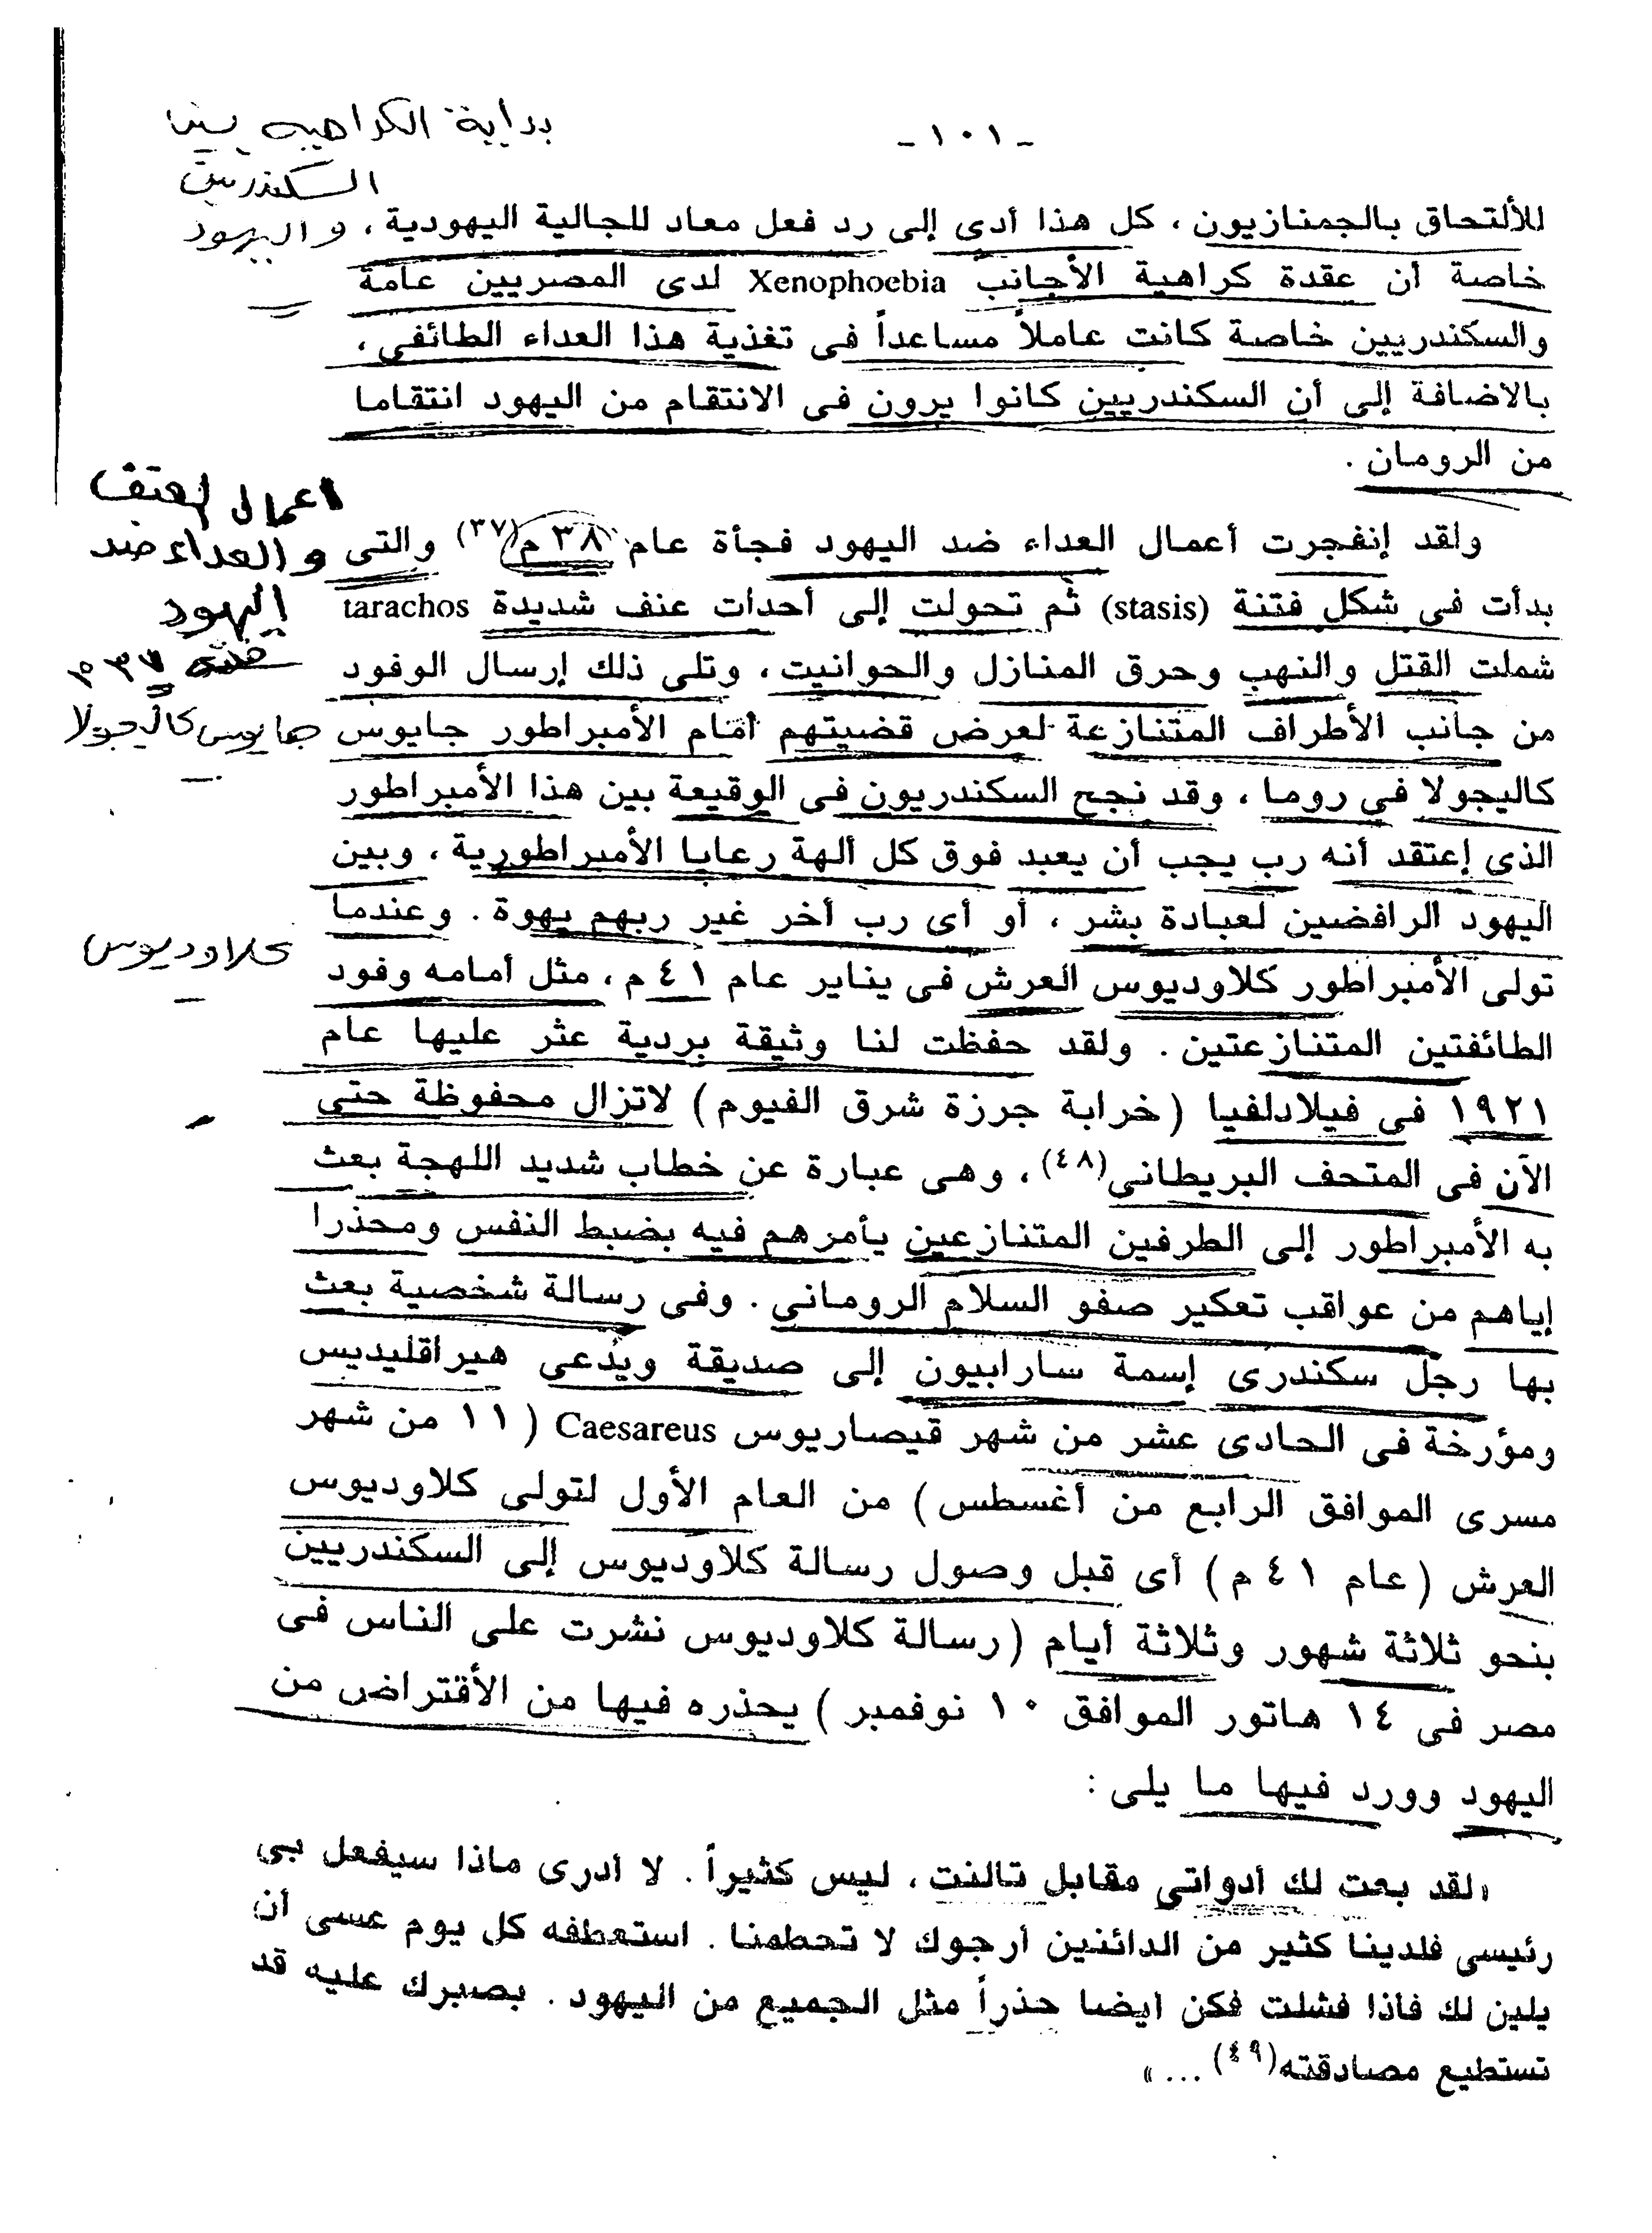 - ١٠١ -
بداية الكراهية بين
السكندريين
واليهود
للألتحاق بالجمنازيون ، كل هذا أدى إلى رد فعل معاد للجالية اليهودية ،
خاصة أن عقدة كراهية الأجانب Xenophoebia لدى المصريين عامة
والسكندريين خاصة كانت عاملاً مساعداً فى تغذية هذا العداء الطائفى ،
بالاضافة إلى أن السكندريين كانوا يرون فى الانتقام من اليهود انتقاما
من الرومان .
اعمال العنف
والعداء ضد
اليهود
ولقد إنفجرت أعمال العداء ضد اليهود فجأة عام ٣٨ م(٣٧) والتى
بدأت فى شكل فتنة (stasis) ثم تحولت إلى أحداث عنف شديدة tarachos
شملت القتل والنهب وحرق المنازل والحوانيت ، وتلى ذلك إرسال الوفود
من جانب الأطراف المتنازعة لعرض قضيتهم أمام الأمبراطور جايوس
جايوس كاليجولا
كاليجولا فى روما ، وقد نجح السكندريون فى الوقيعة بين هذا الأمبراطور
الذى إعتقد أنه رب يجب أن يعبد فوق كل ألهة رعايا الأمبراطورية ، وبين
اليهود الرافضين لعبادة بشر ، أو أى رب أخر غير ربهم يهوة . وعندما
كلاوديوس
تولى الأمبراطور كلاوديوس العرش فى يناير عام ٤١ م ، مثل أمامه وفود
الطائفتين المتنازعتين . ولقد حفظت لنا وثيقة بردية عثر عليها عام
١٩٢١ فى فيلادلفيا (خرابة جرزة شرق الفيوم) لاتزال محفوظة حتى
الآن فى المتحف البريطانى(٤٨) ، وهى عبارة عن خطاب شديد اللهجة بعث
به الأمبراطور إلى الطرفين المتنازعين يأمرهم فيه بضبط النفس ومحذرا
إياهم من عواقب تعكير صفو السلام الرومانى . وفى رسالة شخصية بعث
بها رجل سكندرى إسمة سارابيون إلى صديقة ويُدعى هيراقليديس
ومؤرخة فى الحادى عشر من شهر قيصاريوس Caesareus ( ١١ من شهر
مسرى الموافق الرابع من أغسطس) من العام الأول لتولى كلاوديوس
العرش (عام ٤١ م) أى قبل وصول رسالة كلاوديوس إلى السكندريين
بنحو ثلاثة شهور وثلاثة أيام (رسالة كلاوديوس نشرت على الناس فى
مصر فى ١٤ هاتور الموافق ١٠ نوفمبر) يحذره فيها من الأقتراض من
اليهود وورد فيها ما يلى :
«لقد بعت لك أدواتى مقابل تالنت ، ليس كثيراً . لا أدرى ماذا سيفعل بى
رئيسى فلدينا كثير من الدائنين أرجوك لا تحطمنا . استعطفه كل يوم عسى أن
يلين لك فأذا فشلت فكن ايضا حذراً مثل الجميع من اليهود . بصبرك عليه قد
تستطيع مصادقته(٤٩) ... »